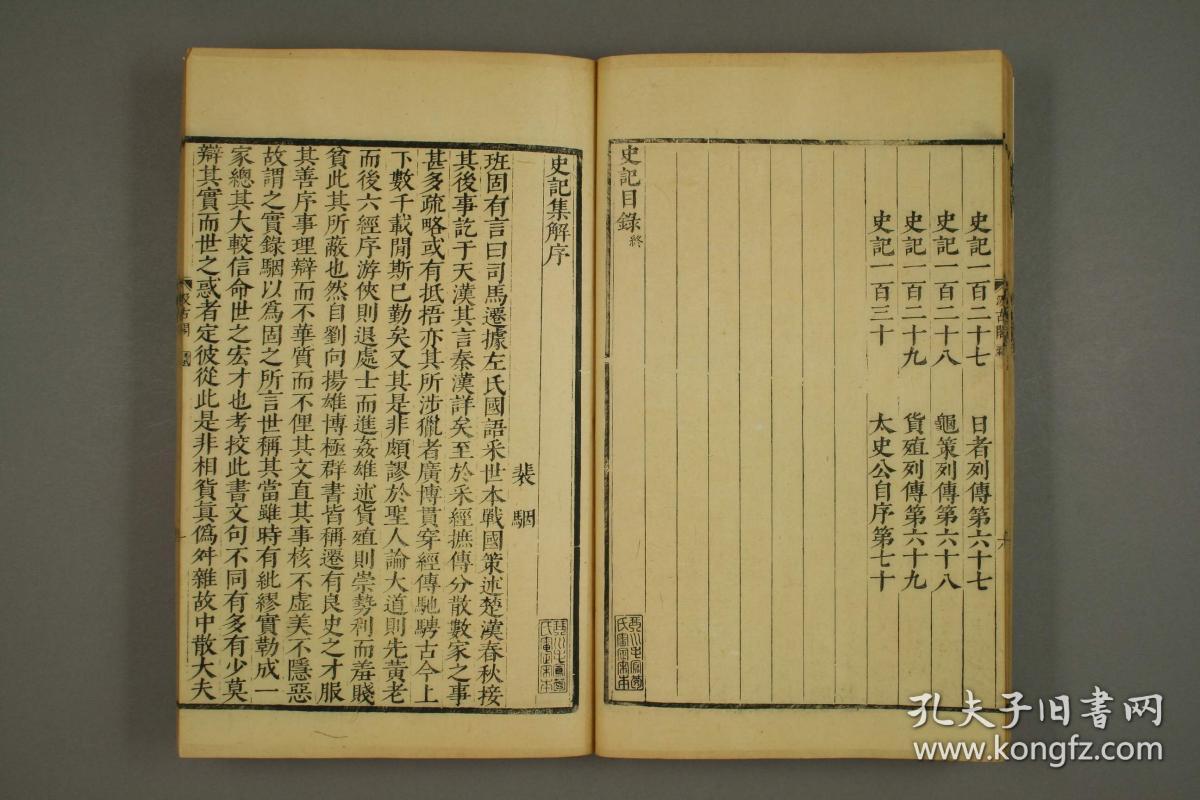 史記一百二十七　日者列傳第六十七
史記一百二十八　龜策列傳第六十八
史記一百二十九　貨殖列傳第六十九
史記一百三十　太史公自序第七十
史記目錄終
史記集解序
裴駰
班固有言曰司馬遷據左氏國語采世本戰國策述楚漢春秋接
其後事訖于天漢其言秦漢詳矣至於采經摭傳分散數家之事
甚多疏略或有抵捂亦其所涉獵者廣博貫穿經傳馳騁古今上
下數千載閒斯已勤矣又其是非頗謬於聖人論大道則先黃老
而後六經序游俠則退處士而進姦雄述貨殖則崇勢利而羞賤
貧此其所蔽也然自劉向揚雄博極群書皆稱遷有良史之才服
其善序事理辯而不華質而不俚其文直其事核不虛美不隱惡
故謂之實錄駰以爲固之所言世稱其當雖時有紕繆實勒成一
家總其大較信命世之宏才也考挍此書文句不同有多有少莫
辯其實而世之惑者定彼從此是非相貿眞僞舛雜故中散大夫
汲古閣
汲古閣
孔夫子旧書网
www.kongfz.com